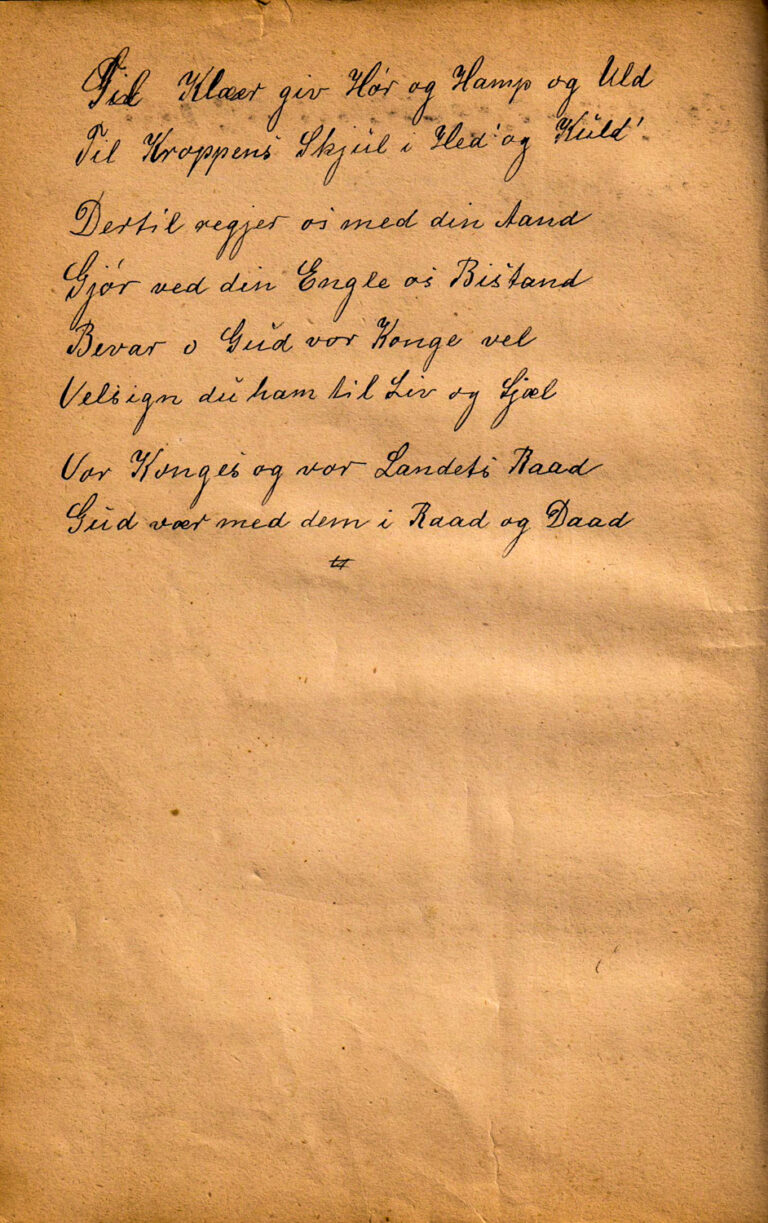 Til Klæer giv Hør og Hamp og Uld
Til Kroppens Skjul i Hed' og Kuld'
Dertil regjer os med din Aand
Gjør ved din Engle os Bistand
Bevar o Gud vor Konge vel
Velsign du ham til Liv og Sjæl
Vor Konges og vor Landets Raad
Gud vær med dem i Raad og Daad